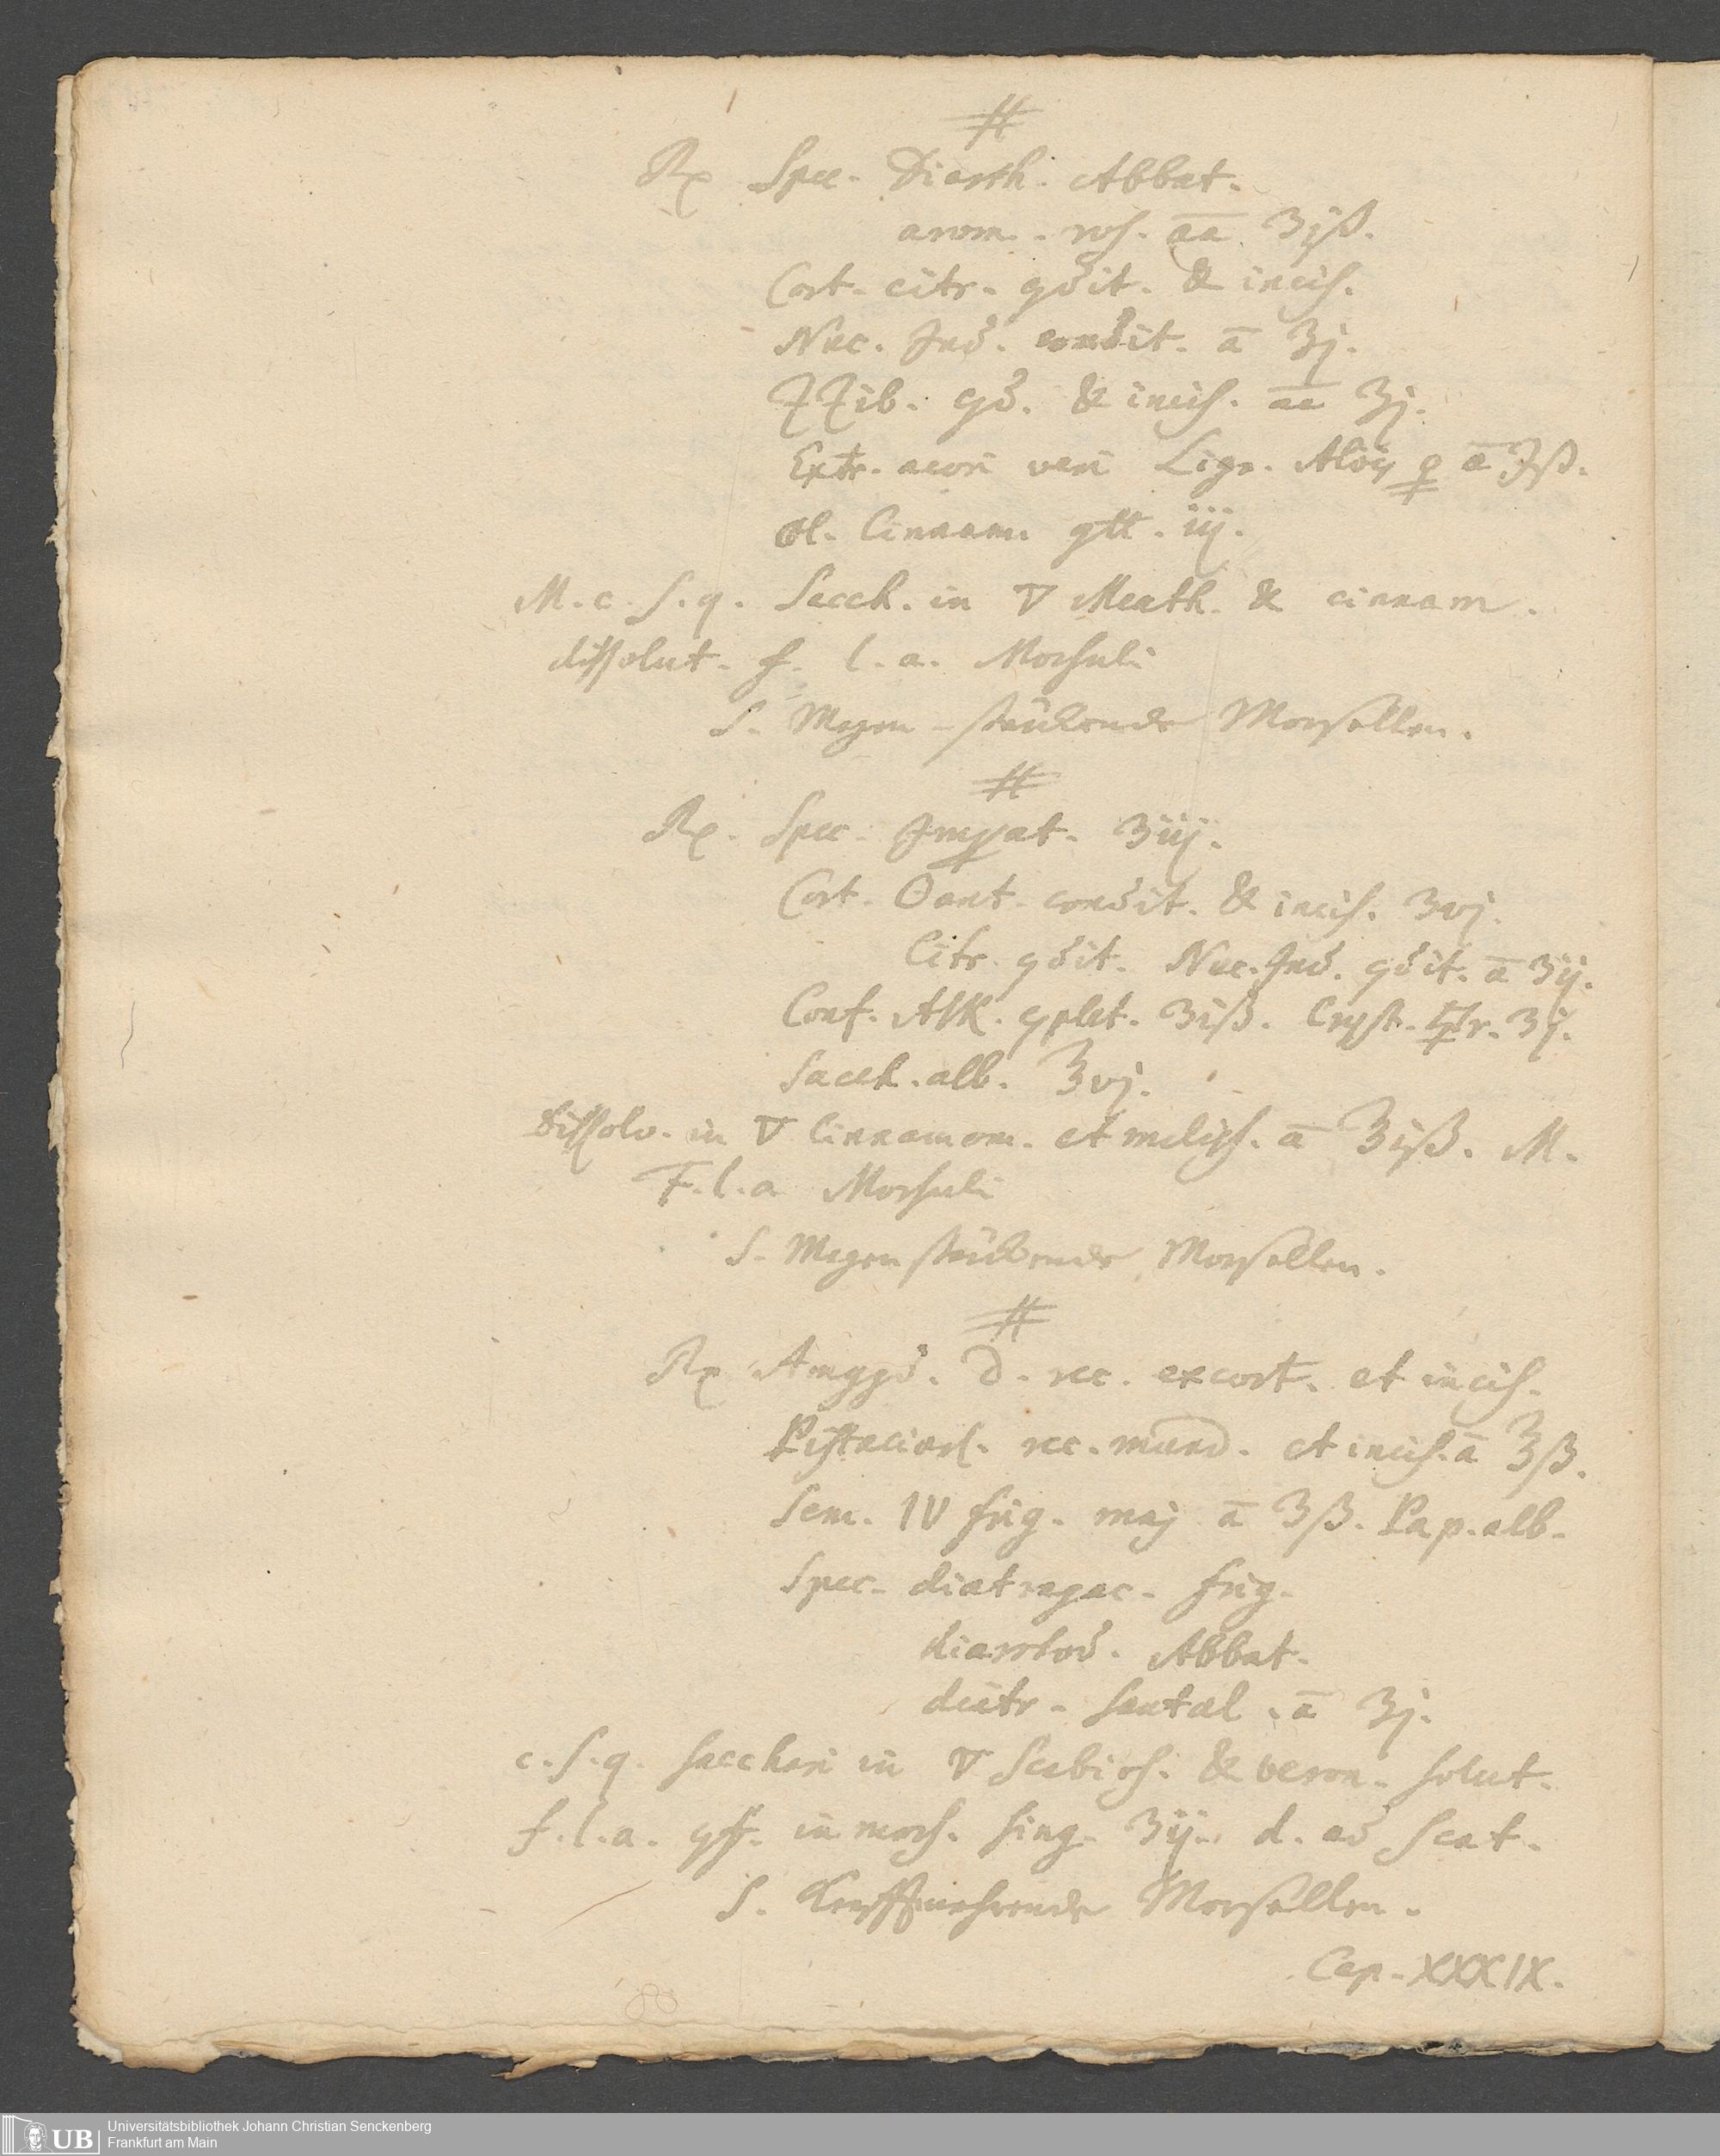 #
Rx Spec. Diarrh. Abbat.
arom. ros. aa ʒjß.
Cort. citr. gdit. & incis.
Nuc. Ind. condit. a ʒj.
ZZib. gd. & incis. aa ℥j.
Extr. acori veri Lign. Aloes a ℈ß.
Ol. Cinnam. gtt. iij.
M. c. s. q. Sacch. in ▽ Menth. & cinnam.
dissolut. f. l. a. Morsuli
S. Magen-stärckende Morsellen.
#
Rx. Spec. Imperat. ʒiij.
Cort. Aant. condit. & incis. ʒvj.
Citr. gdit. Nuc. Ind. gdit. a ʒij.
Conf. Alk. gplet. ʒiß. Cryst. r. ʒj.
Sacch. alb. ℥vj.
dissolv. in ▽ Cinnamom. et meliss. a ℥iß. M.
F. l. a Morsuli
S. Magen stärckende Morsellen.
#
Rx Amygd. d. rec. excort. et incis.
Pistaciarl. rec. mund. et incis. a ℥ß.
Sem. IV frig. maj a ʒß. Pap. alb.
Spec. diatragac. frig.
diarrhod. Abbat.
diatr. santal. a ʒj.
c. s. q. sacchari in ▽ Scabios. & veron. solut.
f. l. a. gf. in mors. sing. ʒij. d. ad scat.
S. Krafftmehrende Morsellen.
Cap. XXXIX.
UB Universitätsbibliothek Johann Christian Senckenberg
Frankfurt am Main